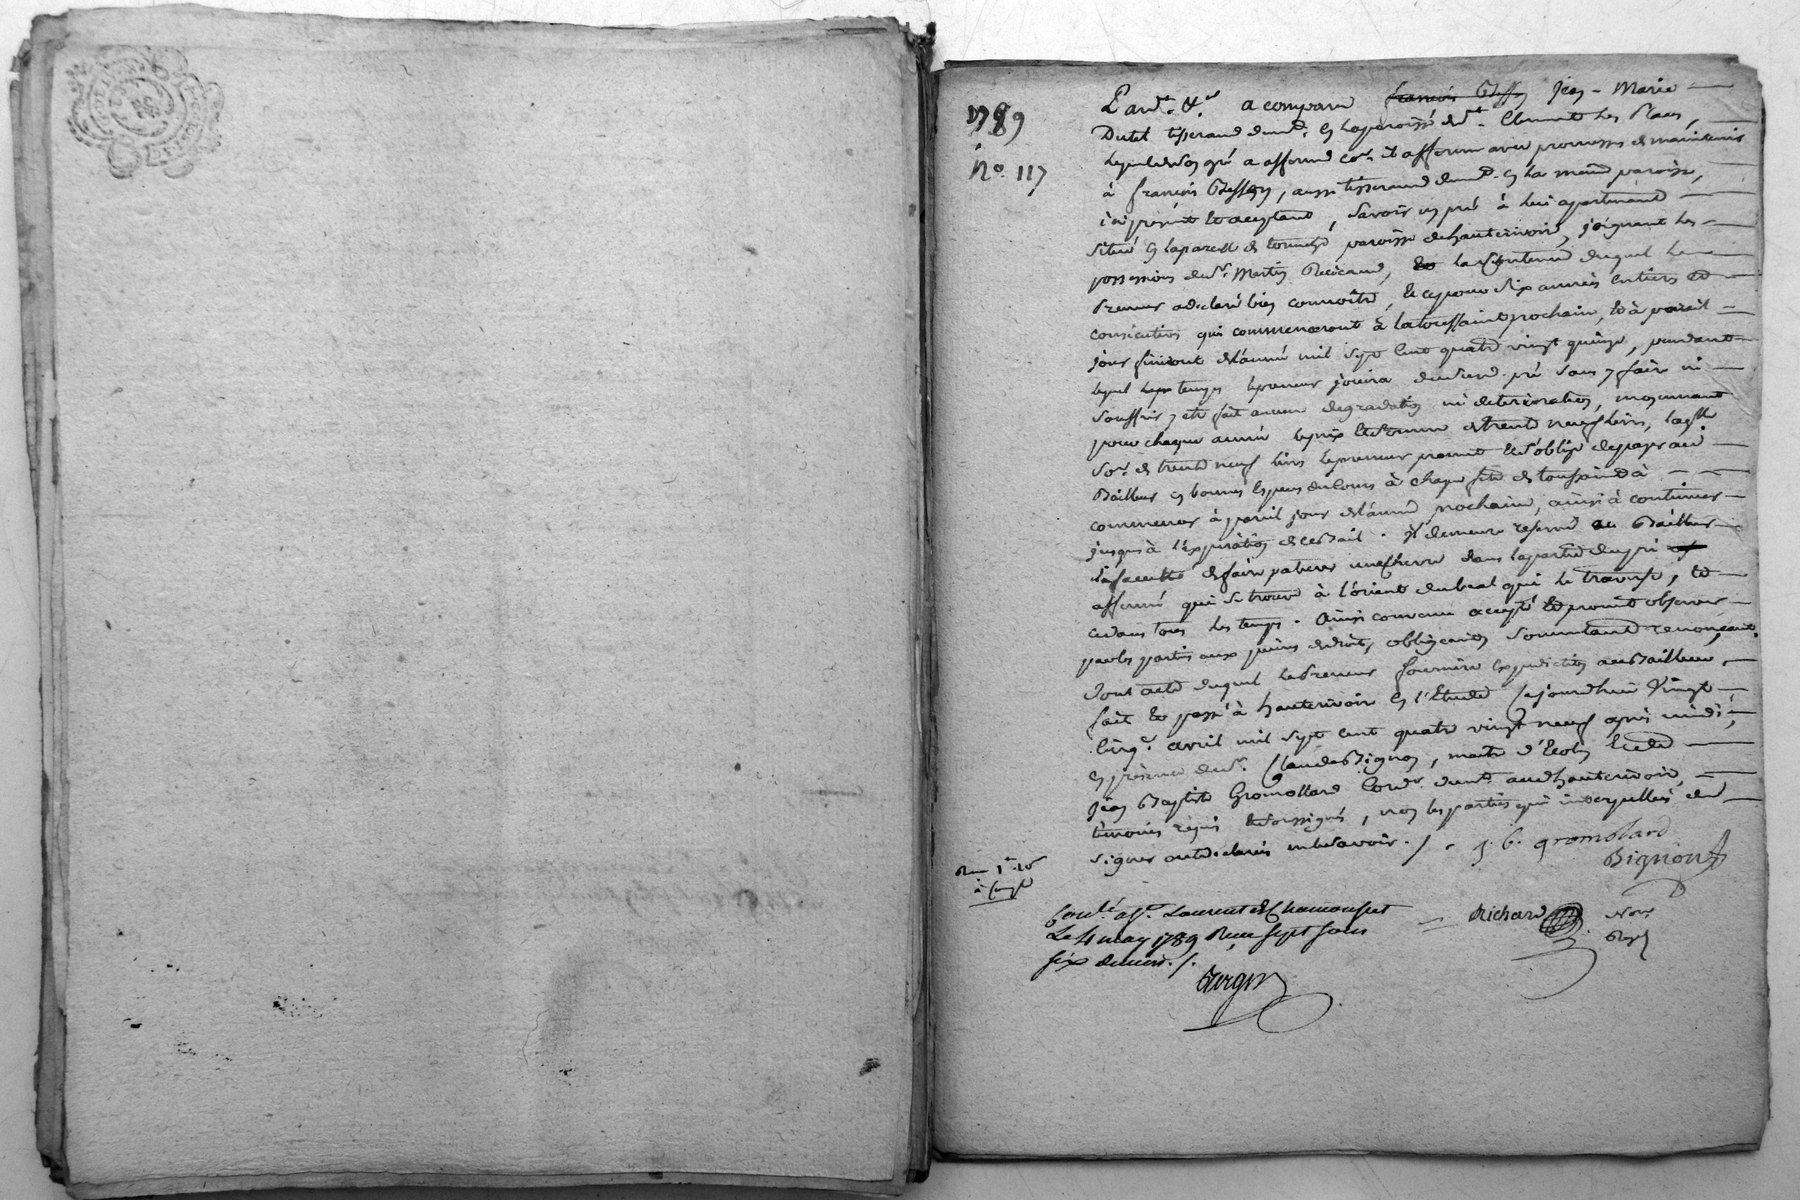 1789
No. 117
Pardt. &c. a comparu françois Besson Jean-Marie
Dutel tisserand demt. en la paroisse de st. Clement les Places,
lequel de son gré a affermé et afferme avec promesses de maintenir
à françois Besson, aussi tisserand demt. en la même paroisse,
ici present et acceptant, savoir un pré à lui apartenant
situé en la parcelle de paroisse de hauterivoire, joignant les
possessions du sr. Martin, la contenue duquel le
Preneur a déclaré bien connoitre, et ce pour six années entieres et
consécutives qui commenceront à la toussaint prochain, et à pareil
jour finiront de l'année mil sept cent quatre vingt quinze, pendant
lequel temps le preneur jouira dudit pré sans y faire ni
souffrir y etre fait aucune degradation ni deterioration, moyennant
pour chaque année le prix et somme de trente neuf livres, laqlle
some. de trente neuf livres le preneur promet et s'oblige de payer au
Bailleur en bonnes especes de cours à chaque fête de toussaint à
commencer à pareil jour de l'année prochaine, ainsi à continuer
jusqu'à l'expiration de ce Bail. Il demeure reservé au Bailleur
la faculté de faire paturer une chevre dans la partie du pré
affermé qui se trouve à l'orient du beal qui le traverse, et
ce dans tous les temps. Ainsi convenu accepté et promis observer
par les parties aux peines de droit, obligeants soumettant renonçant.
Dont acte duquel le Preneur fournira expedition au Bailleur,
fait et passé à hauterivoire en l'étude cejourdhui vingt
cinq. avril mil sept cent quatre vingt neuf après midi,
en présence de sr. Claude Bignon, maitre d'Ecole et de
Jean Baptiste Gromollard Cordr. demt. audt hauterivoire,
témoins requis et soussignés, non les parties qui interpellées de
signer ont déclaré ne le savoir./.
j. b. gromolard
Bignon
Richard Nore
Royal
Contlé. à St. Laurent de Chamousset
Le 4 may 1789 Reçu sept sous
six deniers./.